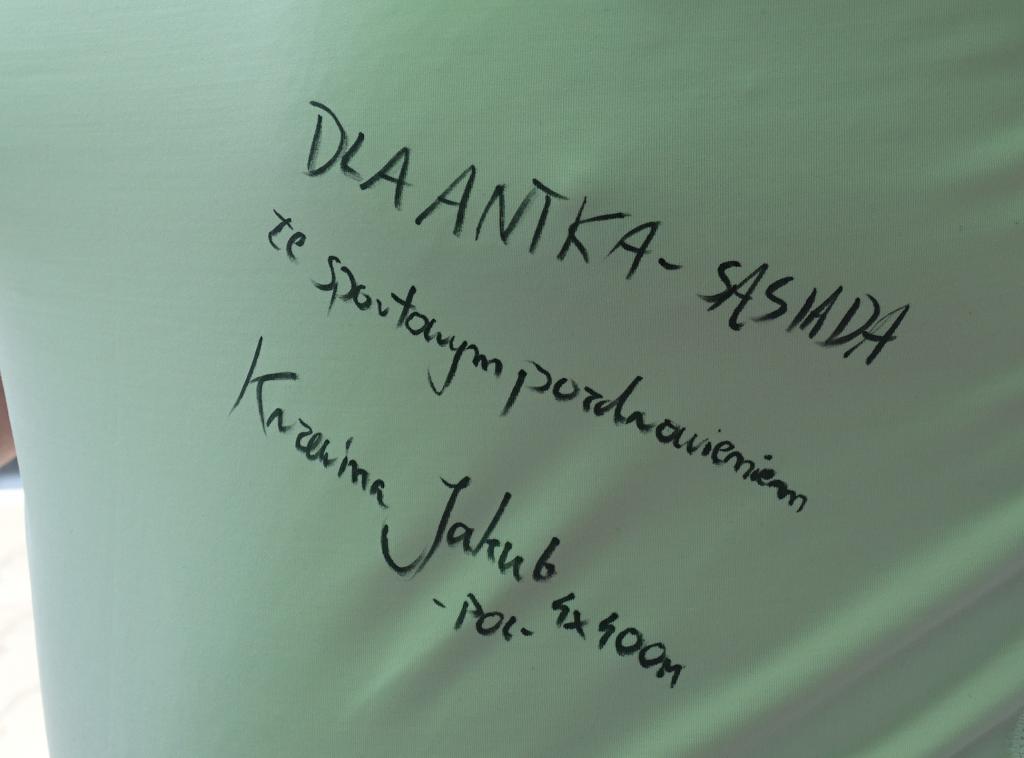 DLA ANTKA - SĄSIADA
ze sportowym pozdrowieniem
Krzewina Jakub
- POL - 4x400m